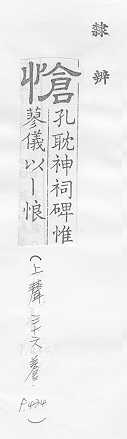 隸辨
愴
孔耽神祠碑惟
蓼儀以丨悢
(上聲 三十六養. P.424)